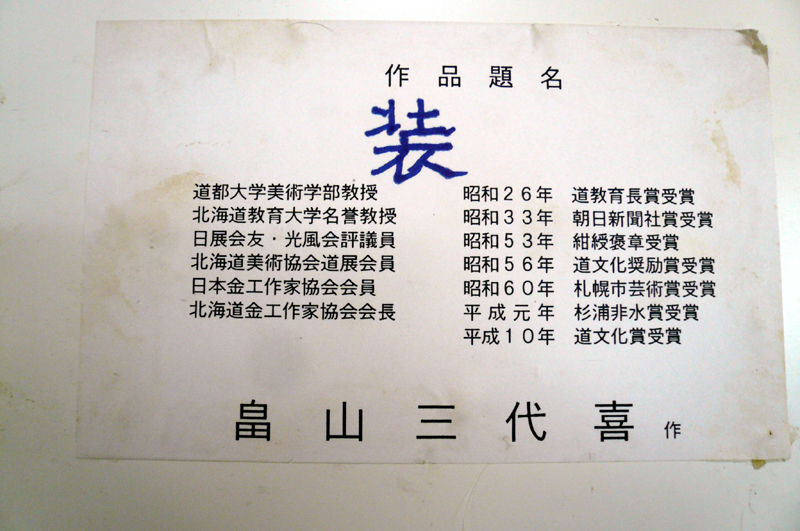 作品題名
装
道都大学美術学部教授 昭和26年 道教育長賞受賞
北海道教育大学名誉教授 昭和33年 朝日新聞社賞受賞
日展会友・光風会評議員 昭和53年 紺綬褒章受賞
北海道美術協会道展会員 昭和56年 道文化奨励賞受賞
日本金工作家協会会員 昭和60年 札幌市芸術賞受賞
北海道金工作家協会会長 平成元年 杉浦非水賞受賞
平成10年 道文化賞受賞
畠山三代喜 作